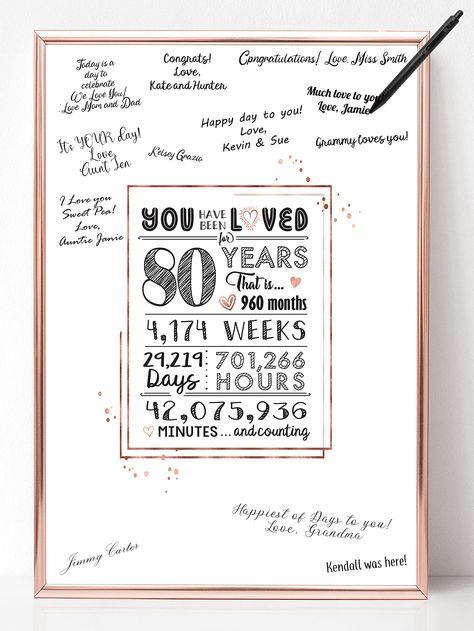 Today is a
day to
celebrate
We Love You!
Love Mom and Dad
Congrats!
Love,
Kate and Hunten
Cpngratulations! Love, Miss Smith
Much love to you
Love, Jamie
Happy day to you!
Love,
Kevin & Sue
Grammy loves you!
It's YOUR day!
Love
Aunt Jen
Kelsey Grazia
I Love you
Sweet Pea!
Love,
Auntie Janie
YOU HAVE BEEN LOVED
for
80 YEARS
That is...
960 months
4,174 WEEKS
29,219 Days
701,266 HOURS
42,075,936
MINUTES ... and counting
Happiest of Days to you!
Love, Grandma
Jimmy Carter
Kendall was here!